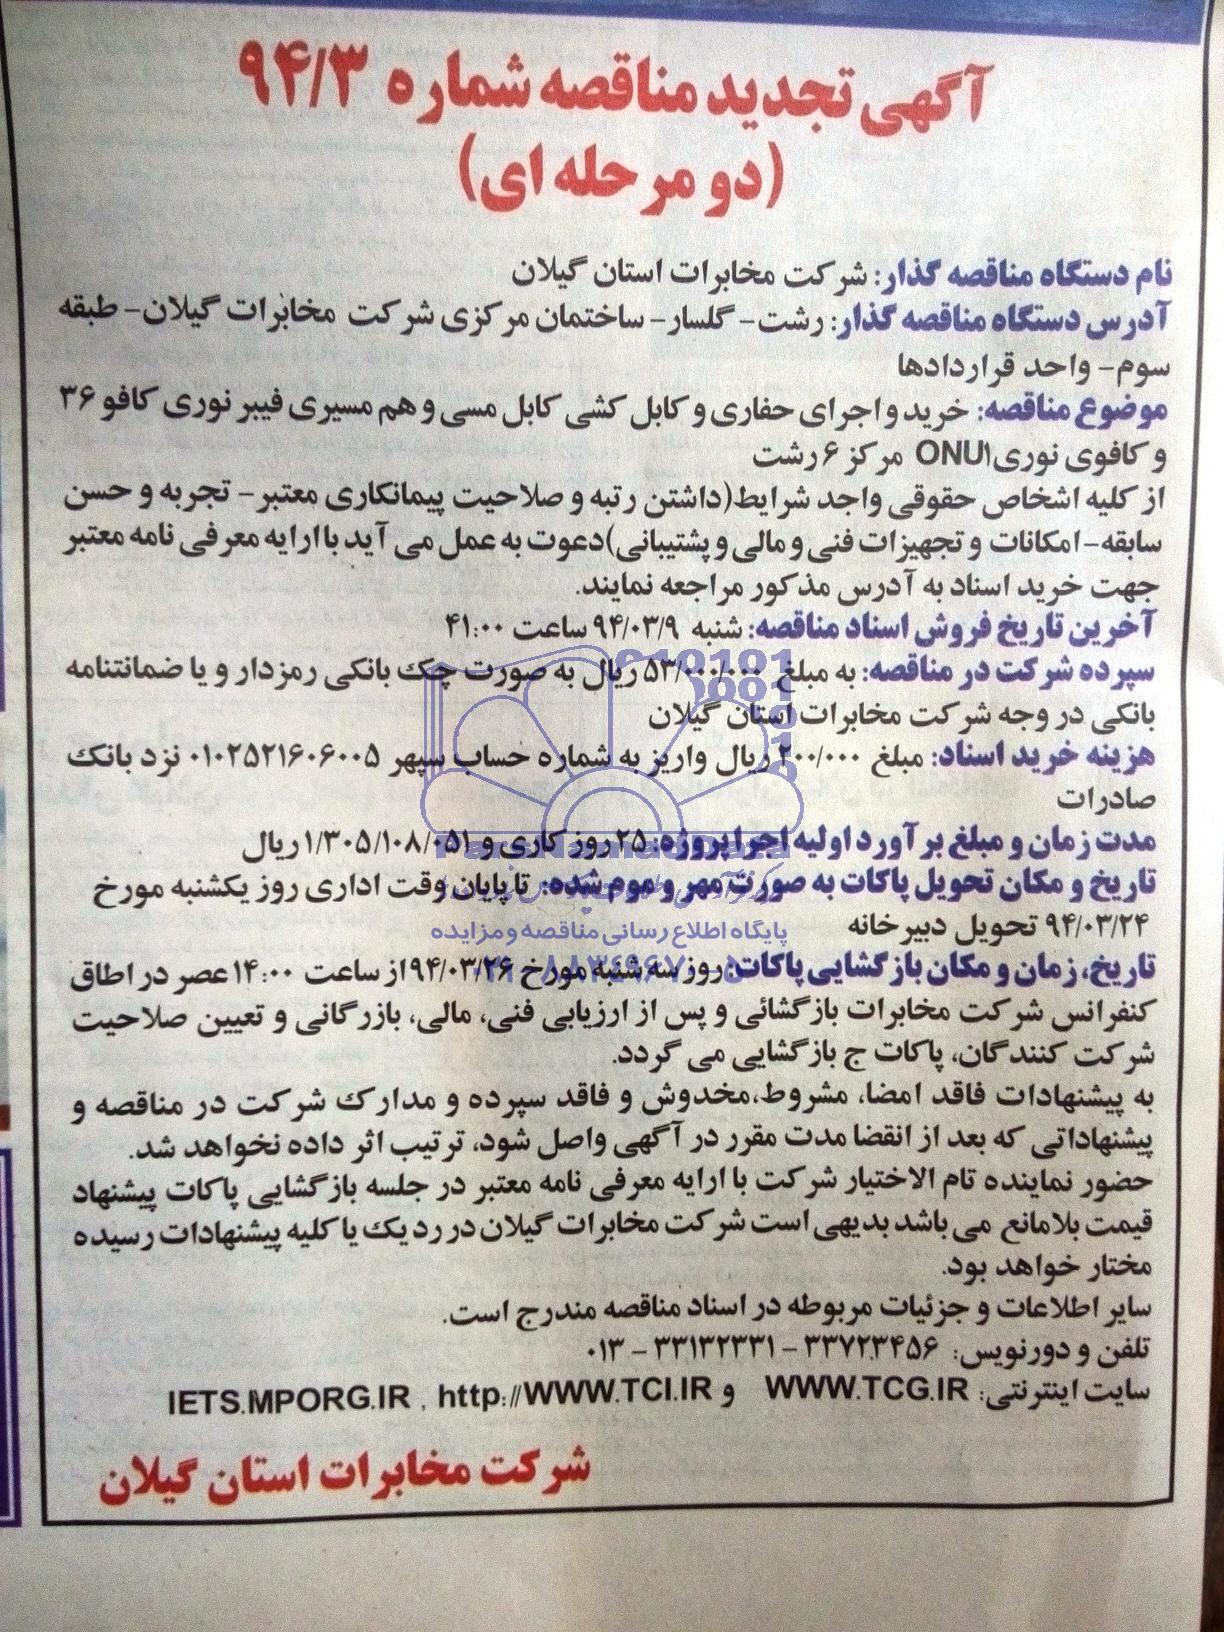 آگهی تجدید مناقصه شماره ۹۴/۳
(دو مرحله ای)
نام دستگاه مناقصه گذار: شرکت مخابرات استان گیلان
آدرس دستگاه مناقصه گذار: رشت- گلسار- ساختمان مرکزی شرکت مخابرات گیلان- طبقه
سوم- واحد قراردادها
موضوع مناقصه: خرید و اجرای حفاری و کابل کشی کابل مسی و هم مسیری فیبر نوری کافو ۳۶
و کافوی نوری ONU۱ مرکز ۶ رشت
از کلیه اشخاص حقوقی واجد شرایط(داشتن رتبه و صلاحیت پیمانکاری معتبر- تجربه و حسن
سابقه- امکانات و تجهیزات فنی و مالی و پشتیبانی)دعوت به عمل می آید با ارایه معرفی نامه معتبر
جهت خرید اسناد به آدرس مذکور مراجعه نمایند.
آخرین تاریخ فروش اسناد مناقصه: شنبه ۹۴/۰۳/۹ ساعت ۴۱:۰۰
سپرده شرکت در مناقصه: به مبلغ ۵۳/۰۰۰/۰۰۰ ریال به صورت چک بانکی رمزدار و یا ضمانتنامه
بانکی در وجه شرکت مخابرات استان گیلان
هزینه خرید اسناد: مبلغ ۲۰۰/۰۰۰ ریال واریز به شماره حساب سپهر ۰۱۰۲۵۲۱۶۰۶۰۰۵ نزد بانک
صادرات
مدت زمان و مبلغ برآورد اولیه اجرا پروژه: ۲۵ روز کاری و ۱/۳۰۵/۱۰۸/۰۵۱ ریال
تاریخ و مکان تحویل پاکات به صورت مهر و موم شده: تا پایان وقت اداری روز یکشنبه مورخ
۹۴/۰۳/۲۴ تحویل دبیرخانه
پایگاه اطلاع رسانی مناقصه و مزایده
تاریخ، زمان و مکان بازگشایی پاکات: روز سه شنبه مورخ ۹۴/۰۳/۲۶ از ساعت ۱۴:۰۰ عصر در اطاق
کنفرانس شرکت مخابرات بازگشائی و پس از ارزیابی فنی، مالی، بازرگانی و تعیین صلاحیت
شرکت کنندگان، پاکات ج بازگشایی می گردد.
به پیشنهادات فاقد امضا، مشروط،مخدوش و فاقد سپرده و مدارک شرکت در مناقصه و
پیشنهاداتی که بعد از انقضا مدت مقرر در آگهی واصل شود، ترتیب اثر داده نخواهد شد.
حضور نماینده تام الاختیار شرکت با ارایه معرفی نامه معتبر در جلسه بازگشایی پاکات پیشنهاد
قیمت بلامانع می باشد بدیهی است شرکت مخابرات گیلان در رد یک یا کلیه پیشنهادات رسیده
مختار خواهد بود.
سایر اطلاعات و جزئیات مربوطه در اسناد مناقصه مندرج است.
تلفن و دورنویس: ۳۳۷۲۳۴۵۶ - ۳۳۱۳۲۳۳۱ - ۰۱۳
سایت اینترنتی: WWW.TCG.IR و IETS.MPORG.IR , http://WWW.TCI.IR
شرکت مخابرات استان گیلان